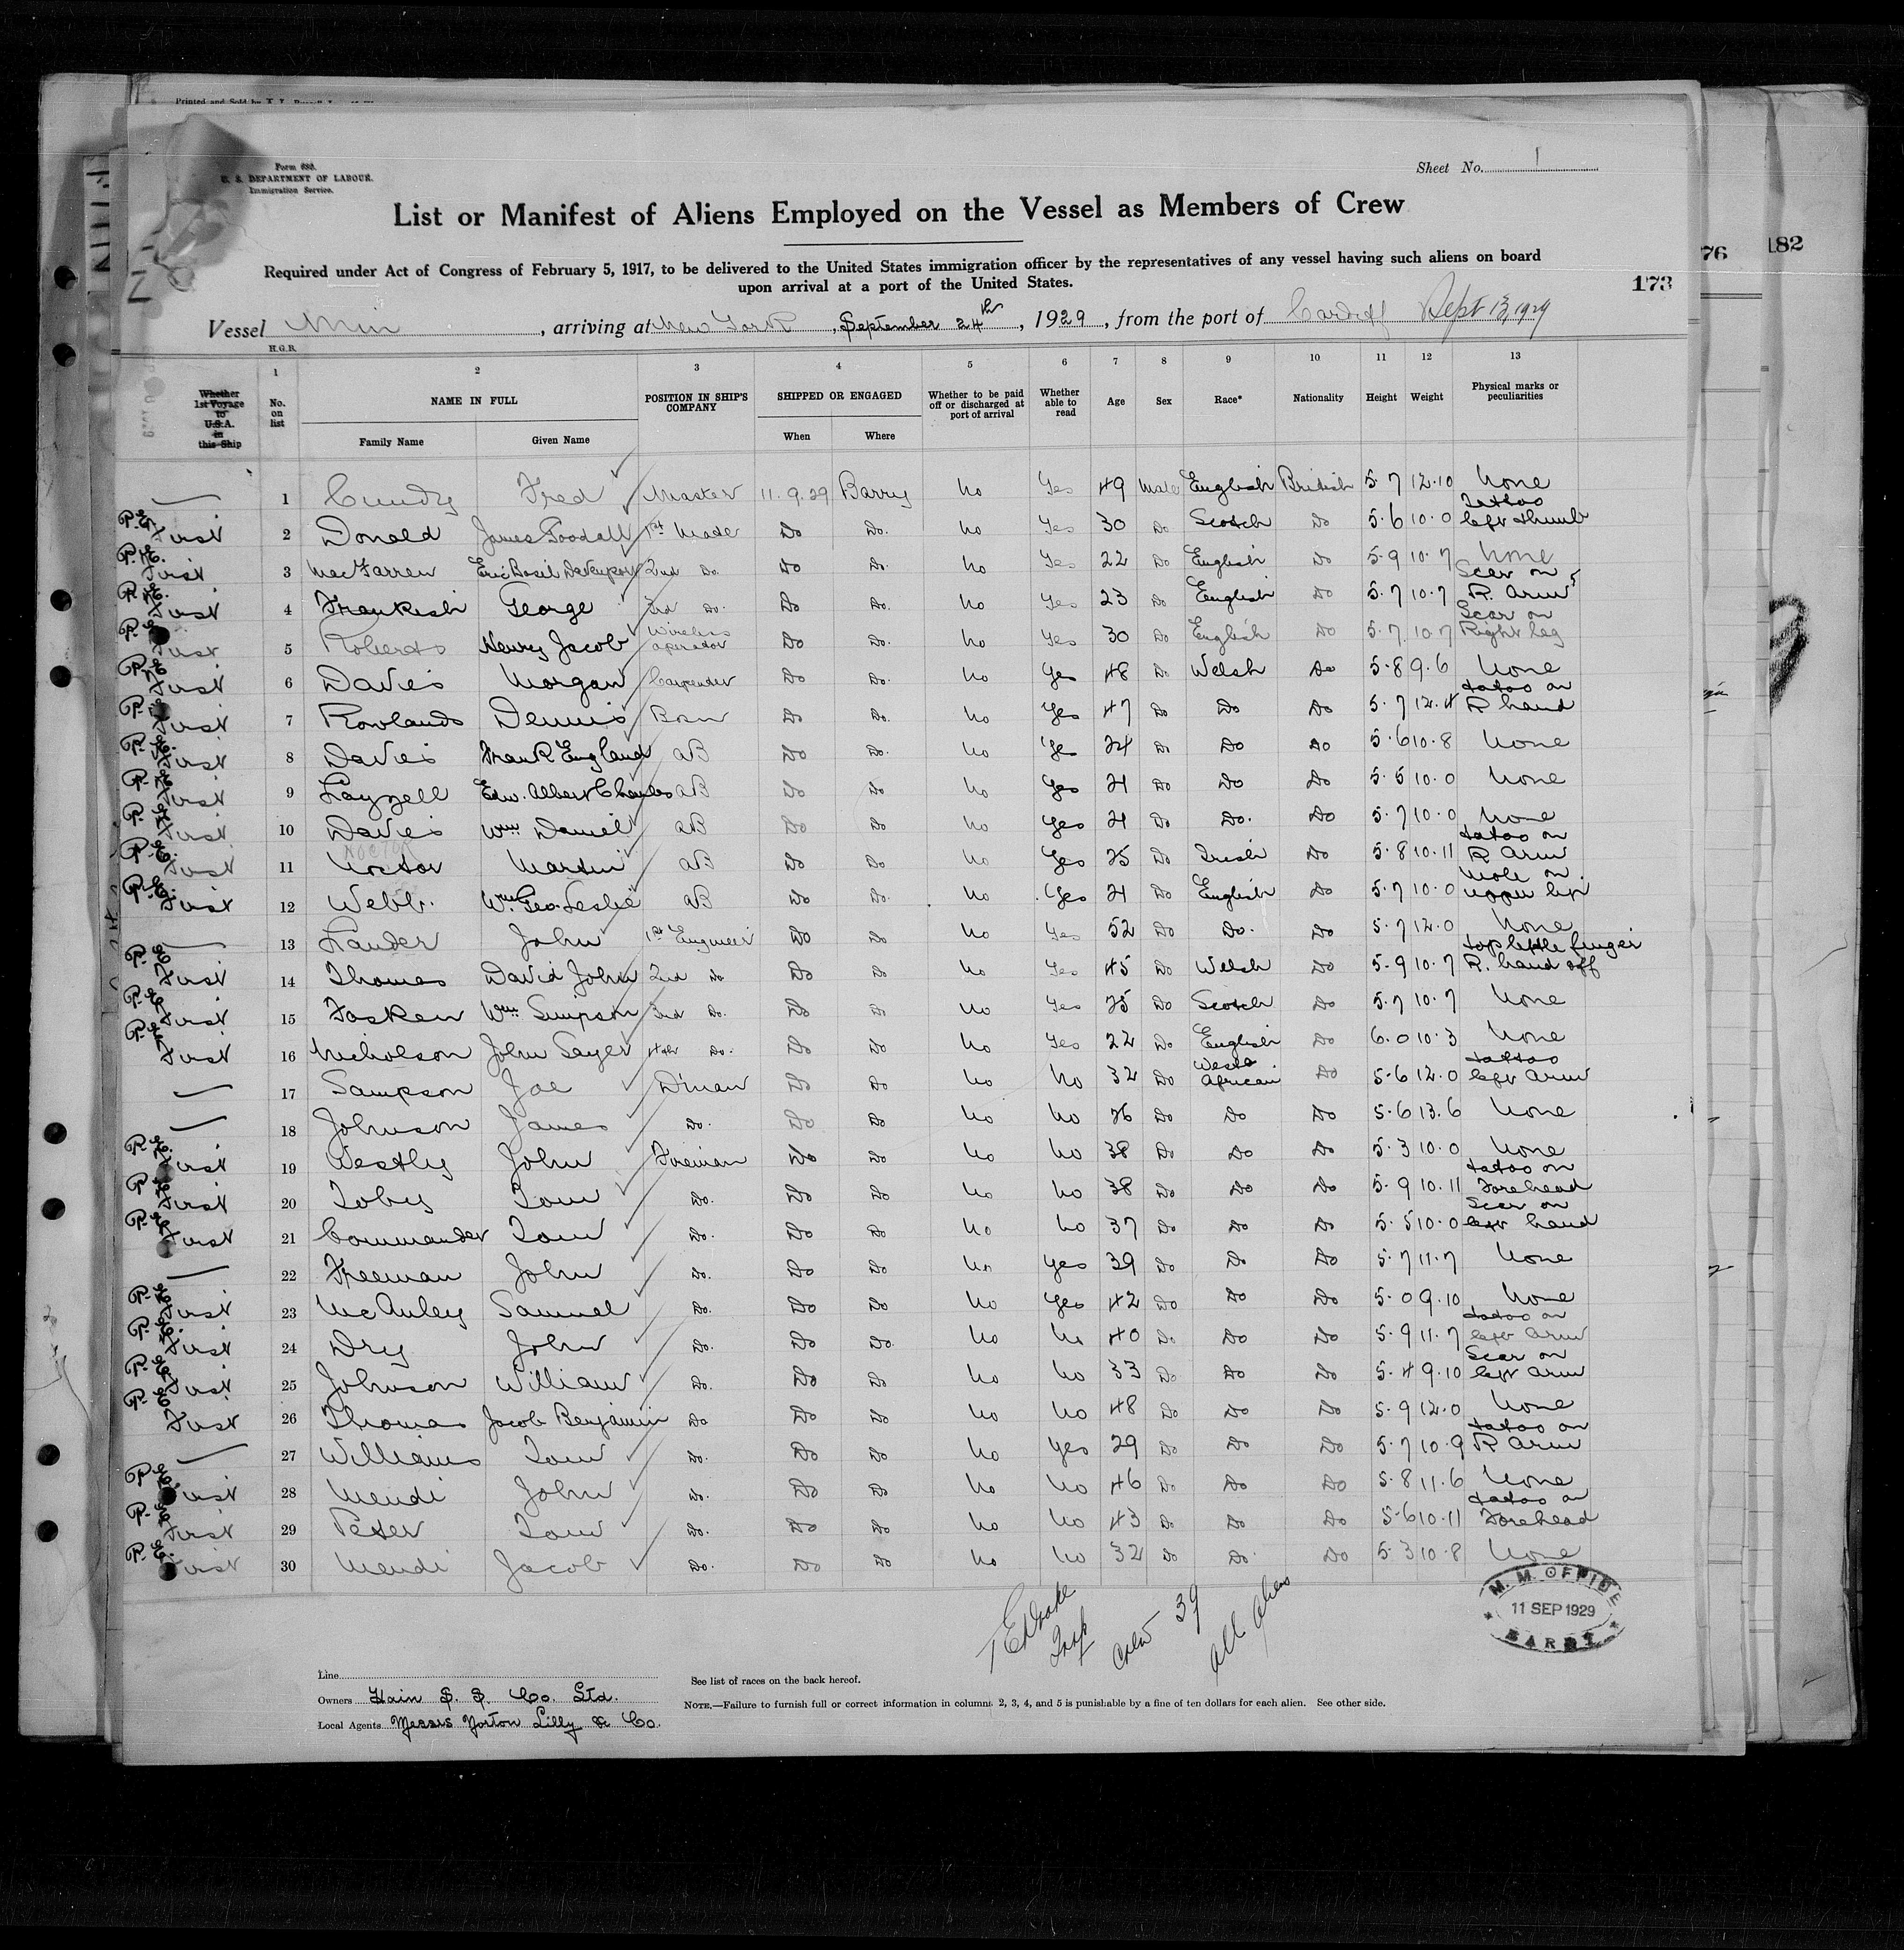 Printed and Sold by
Form 680.
U. S. DEPARTMENT OF LABOUR.
Immigration Service.
Sheet No. 1
List or Manifest of Aliens Employed on the Vessel as Members of Crew
Required under Act of Congress of February 5, 1917, to be delivered to the United States immigration officer by the representatives of any vessel having such aliens on board
upon arrival at a port of the United States.
173
76
182
Vessel Min, arriving at New York, September 24th, 1929, from the port of Cardiff Sept 13, 1929
H.G.B.
1 2 3 4 5 6 7 8 9 10 11 12 13
Whether 1st Voyage to U.S.A. in this Ship
No. on list
NAME IN FULL
Family Name Given Name
POSITION IN SHIP'S COMPANY
SHIPPED OR ENGAGED
When Where
Whether to be paid off or discharged at port of arrival
Whether able to read
Age Sex Race* Nationality Height Weight
Physical marks or peculiarities
— 1 Cundy Fred Master 11.9.29 Barry No Yes 49 Male English British 5.7 12.10 None
First 2 Donald James Goodall 1st Mate Do Do. No Yes 30 Do Scotch Do 5.6 10.0 Tattoo left thumb
First 3 MacFarren Eric Basil Davenport 2nd Do. Do Do. No Yes 22 Do English Do 5.9 10.7 None
First 4 Frankish George 3rd Do. Do Do. No Yes 23 Do English Do 5.7 10.7 Scar on R. Arm
First 5 Roberts Henry Jacob Wireless operator Do Do. No Yes 30 Do English Do 5.7 10.7 Scar on Right leg
First 6 Davies Morgan Carpenter Do Do. No Yes 48 Do Welsh Do 5.8 9.6 None
First 7 Rowlands Dennis Bosn Do Do. No Yes 47 Do Do Do 5.7 12.4 tatoo on R hand
First 8 Davies Frank England AB Do Do. No Yes 24 Do Do Do 5.6 10.8 None
First 9 Layzell Edw. Albert Charles AB Do Do No Yes 21 Do Do Do 5.5 10.0 None
First 10 Davies Wm Daniel AB Do Do No Yes 21 Do Do. Do 5.7 10.0 None
First 11 Noctor Martin AB Do Do No Yes 25 Do Irish Do 5.8 10.11 tatoo on R Arm
First 12 Webb. Wm. Geo. Leslie AB Do Do. No Yes 21 Do English Do 5.7 10.0 Mole on upper lip
— 13 Lauder John 1st Engineer Do Do No Yes 52 Do Do. Do 5.7 12.0 None
First 14 Thomas David John 2nd Do Do Do No Yes 45 Do Welsh Do 5.9 10.7 top little finger R. hand off
First 15 Fosken Wm Simpson 3rd Do. Do Do No Yes 25 Do Scotch Do 5.7 10.7 None
First 16 Nicholson John Sayer 4th Do. Do Do No Yes 22 Do English Do 6.0 10.3 None
— 17 Sampson Joe D'man Do Do No No 32 Do West African Do 5.6 12.0 tattoo left arm
— 18 Johnson James Do. Do Do No No 26 Do Do Do 5.6 13.6 None
First 19 Westly John Fireman Do Do No No 38 Do Do Do 5.3 10.0 None
First 20 Toby Tom Do. Do Do No No 38 Do Do Do 5.9 10.11 tatoo on Forehead
First 21 Commander Tom Do. Do Do No No 37 Do Do Do 5.5 10.0 Scar on left hand
— 22 Freeman John Do. Do Do No Yes 39 Do Do Do 5.7 11.7 None
First 23 McAuley Samuel Do. Do Do No Yes 42 Do Do Do 5.0 9.10 None
First 24 Dry John Do. Do Do. No No 40 Do Do Do 5.9 11.7 tatoo on left arm
First 25 Johnson William Do. Do Do No No 33 Do Do Do 5.4 9.10 Scar on left arm
First 26 Thomas Jacob Benjamin Do Do Do No No 48 Do Do Do 5.9 12.0 None
— 27 Williams Tom Do. Do Do No Yes 29 Do Do Do 5.7 10.9 tatoo on R Arm
First 28 Mendi John Do. Do Do No No 46 Do Do Do 5.8 11.6 None
First 29 Peter Tom Do. Do Do No No 43 Do Do Do 5.6 10.11 tatoo on Forehead
First 30 Mendi Jacob Do. Do Do No No 32 Do Do. Do 5.3 10.8 None
Insp
Crew 39
All Aliens
M. M. OFFICE
11 SEP 1929
BARRY
Line
Owners Hain S. S. Co. Ltd.
Local Agents Messrs Norton Lilly & Co.
See list of races on the back hereof.
NOTE.—Failure to furnish full or correct information in columns 2, 3, 4, and 5 is punishable by a fine of ten dollars for each alien. See other side.